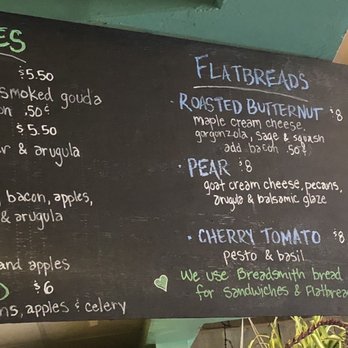 ES
$5.50
smoked gouda
.50¢
$5.50
& arugula
, bacon, apples,
& arugula
and apples
$6
apples & celery
FLATBREADS
• ROASTED BUTTERNUT $8
maple cream cheese,
gorgonzola, sage & squash
add bacon .50¢
• PEAR $8
goat cream cheese, pecans,
arugula & balsamic glaze
• CHERRY TOMATO $8
pesto & basil
We use Breadsmith bread
for sandwiches & Flatbrea